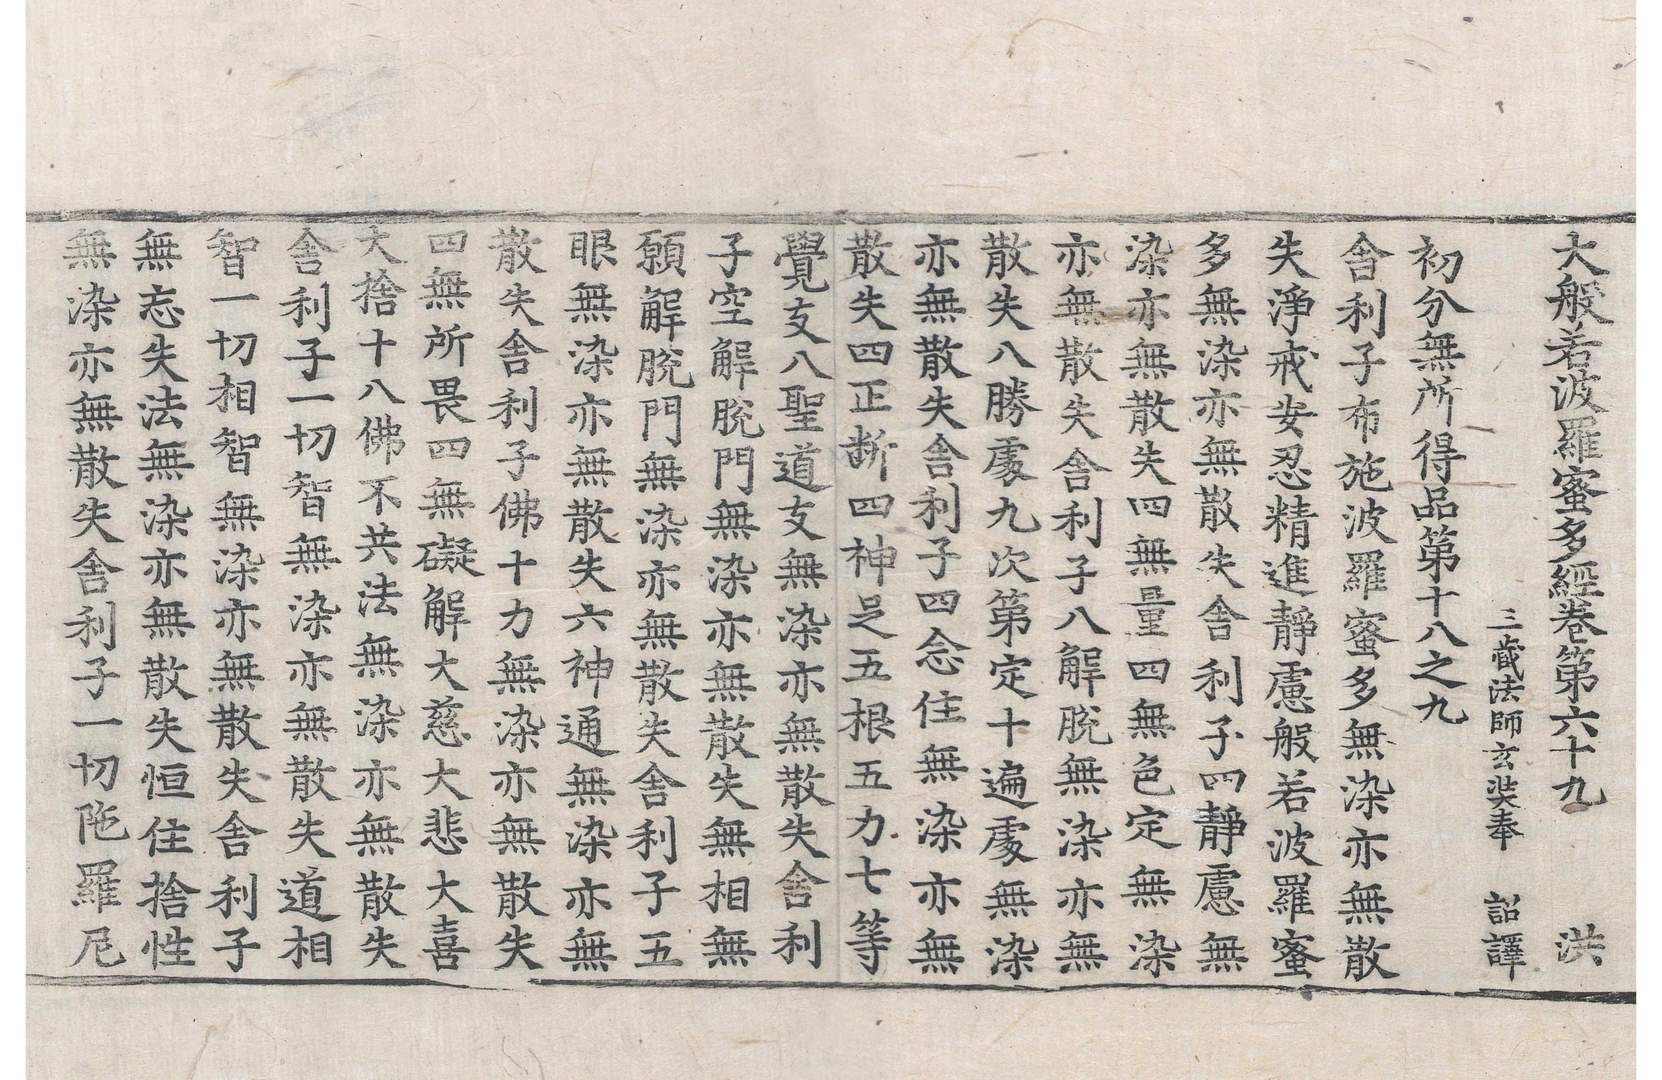 大般若波羅蜜多經卷第六十九　洪
三藏法師玄奘奉　詔譯
初分無所得品第十八之九
舎利子布施波羅蜜多無染亦無散
失淨戒安忍精進靜慮般若波羅蜜
多無染亦無散失舎利子四靜慮無
染亦無散失四無量四無色定無染
亦無散失舎利子八解脫無染亦無
散失八勝處九次第定十遍處無染
亦無散失舎利子四念住無染亦無
散失四正断四神足五根五力七等
覺支八聖道支無染亦無散失舎利
子空解脫門無染亦無散失無相無
願解脫門無染亦無散失舎利子五
眼無染亦無散失六神通無染亦無
散失舎利子佛十力無染亦無散失
四無所畏四無礙解大慈大悲大喜
大捨十八佛不共法無染亦無散失
舎利子一切智無染亦無散失道相
智一切相智無染亦無散失舎利子
無忘失法無染亦無散失恒住捨性
無染亦無散失舎利子一切陁羅尼